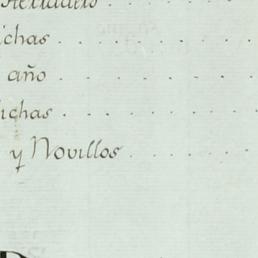 ichas . . . . . .
año . . . . . .
ichas . . . . . .
y Novillos . . . . .